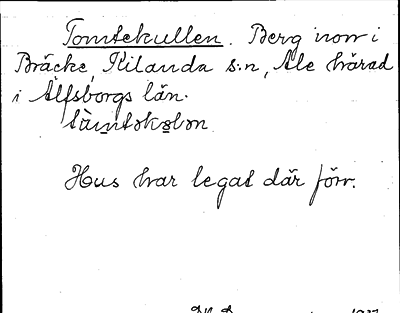 Tomtekullen. Berg inom i
Bräcke, Kilanda s:n, Ale härad
i Älfsborgs län.
Hus har legat där förr.